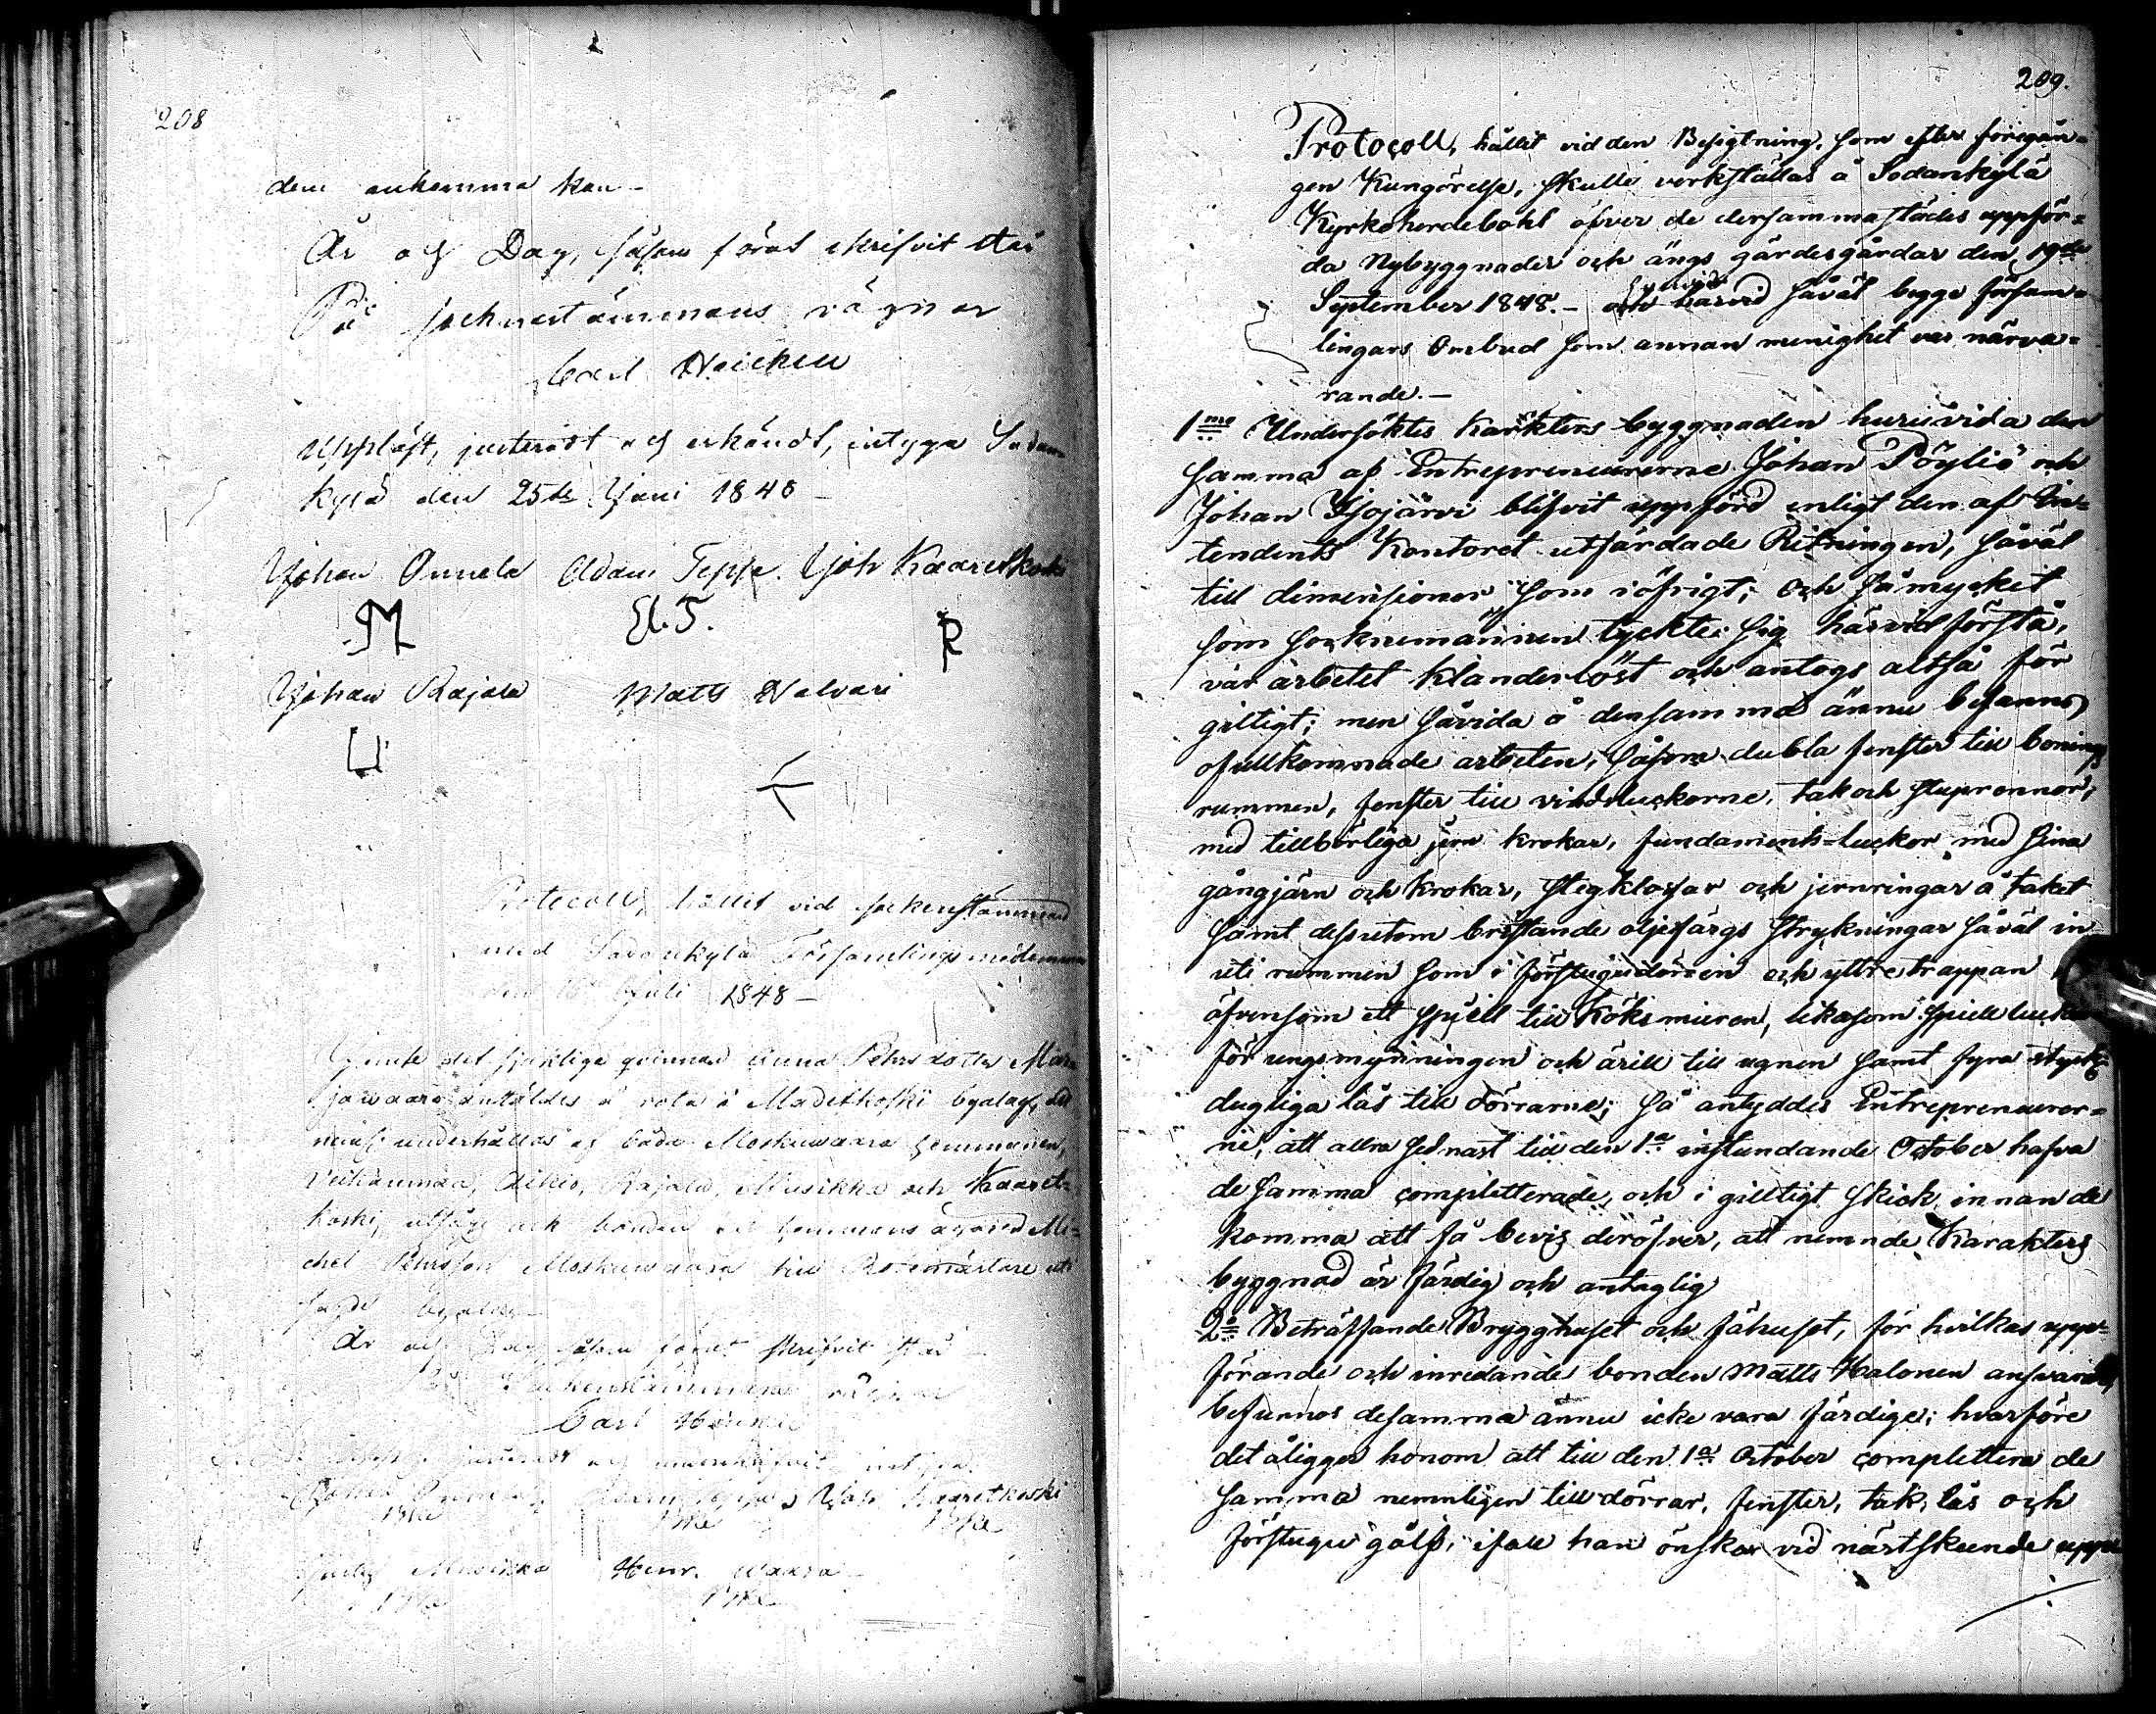 208
dem ankomma kan -
År och Dag, såsom förut skrifvit står
På sockenstämmans vägnar
Carl Heickell
Uppläst, justeradt och erkändt, intyga Sodan-
kylä den 25te Juni 1848 -
Johan Onnela Adam Teppe. Joh Kaaretkoski
M El. T. R
Johan Rajala Matts Halvari
Protocoll, hållit vid sockenstämman
med Sodankylä Församlings medlemmar
den Juli 1848 -
det sjukliga qvinnan Anna Pehrsdotter
jawaara anstäldes å rota i Madetkoski byalag, att
underhållas af båda Moskuwaara hemmanen,
Aikio, Rajala, Musikka och Kaaret-
koski, och bonden och hemmans ägaren Mi-
chel Pehrsson Moskuwaara till Rotemästare uti
sagde byalag -
År och Dag såsom förut skrifvit står -
På Sockenstämmans vägnar
Carl Heickell
justeradt och underskrifvit intyga
Johan Onnela Adam Teppe Joh Kaaretkoski
Musikka Henr. Waara
209.
Protocoll, hållit vid den Besigtning, som efter föregån-
gen Kungörelse, skulle verkställas å Sodankylä
Kyrkoherdebohl öfver de dersammastädes uppför-
da Nybyggnader och ängs gärdesgårdar den 19de
September 1848. - och härvid såväl begge försam-
lingars Ombud som annan menighet var närva-
rande. -
1mo Undersöktes Karkters byggnaden huruvida den
samma af Entrepreneurerne Johan Pöyliö och
Johan Yjojärvi blifvit uppförd enligt den af In-
tendents Kontoret utfärdade Ritningen, såväl
till dimensioner som i öfrigt; och så mycket
som socknemännen tyckte sig härvid förstå,
var arbetet klanderlöst och antogs altså för
giltigt; men såvida å densamma ännu befanns
ofullkomnade arbeten, såsom dubla fenster till bonings
rummen, fenster till vindsluckorne, tak och stuprännor,
med tillbörliga jern krokar, fundaments-luckor med sina
gångjärn och krokar, stegklossar och jernringar å taket
samt dessutom bristande oljefärgs strykningar såväl in
uti rummen som i förstugudörren och yttre trappan
äfvensom ett spjell till Köksmuren, likasom spjell luckor
för ungsmynningen och ärill till ugnen samt fyra stycke
dugliga lås till dörrarne; så antyddes Entrepreneurer-
ne, att allra sednast till den 1a instundande October hafva
de samma completterade, och i gilltigt skick, innan de
komma att få bevis deröfver, att nemnde Karakters
byggnad är färdig och antaglig
2o Beträffande Brygghuset och fähuset, för hvilkas upp-
förande och inredande bonden Matts Halonen ansvarar,
befunnos desamma ännu icke vara färdige; hvarföre
det åligger honom att till den 1a October complettera de
samma nemnligen till dörrar, fenster, tak, lås och
förstugu gålf, ifall han önskar vid närstskeende uppe